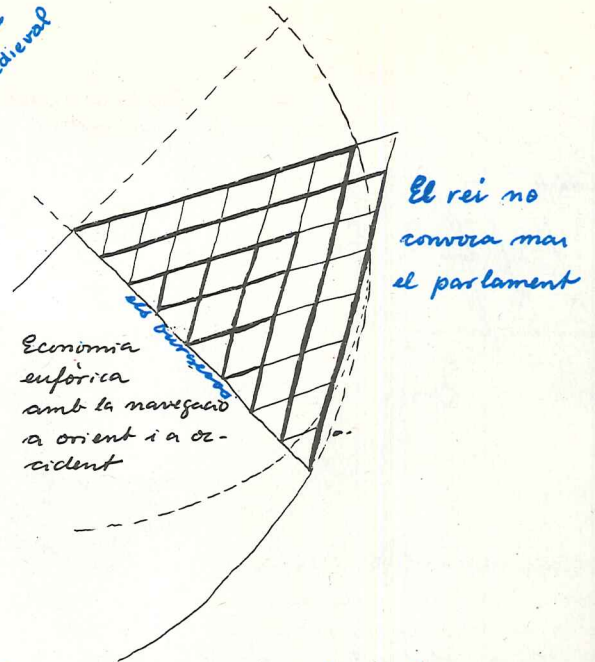 dieval
El rei no
convoca mai
el parlament
els burgesos
Economia
eufòrica
amb la navegació
a orient i a oc-
cident